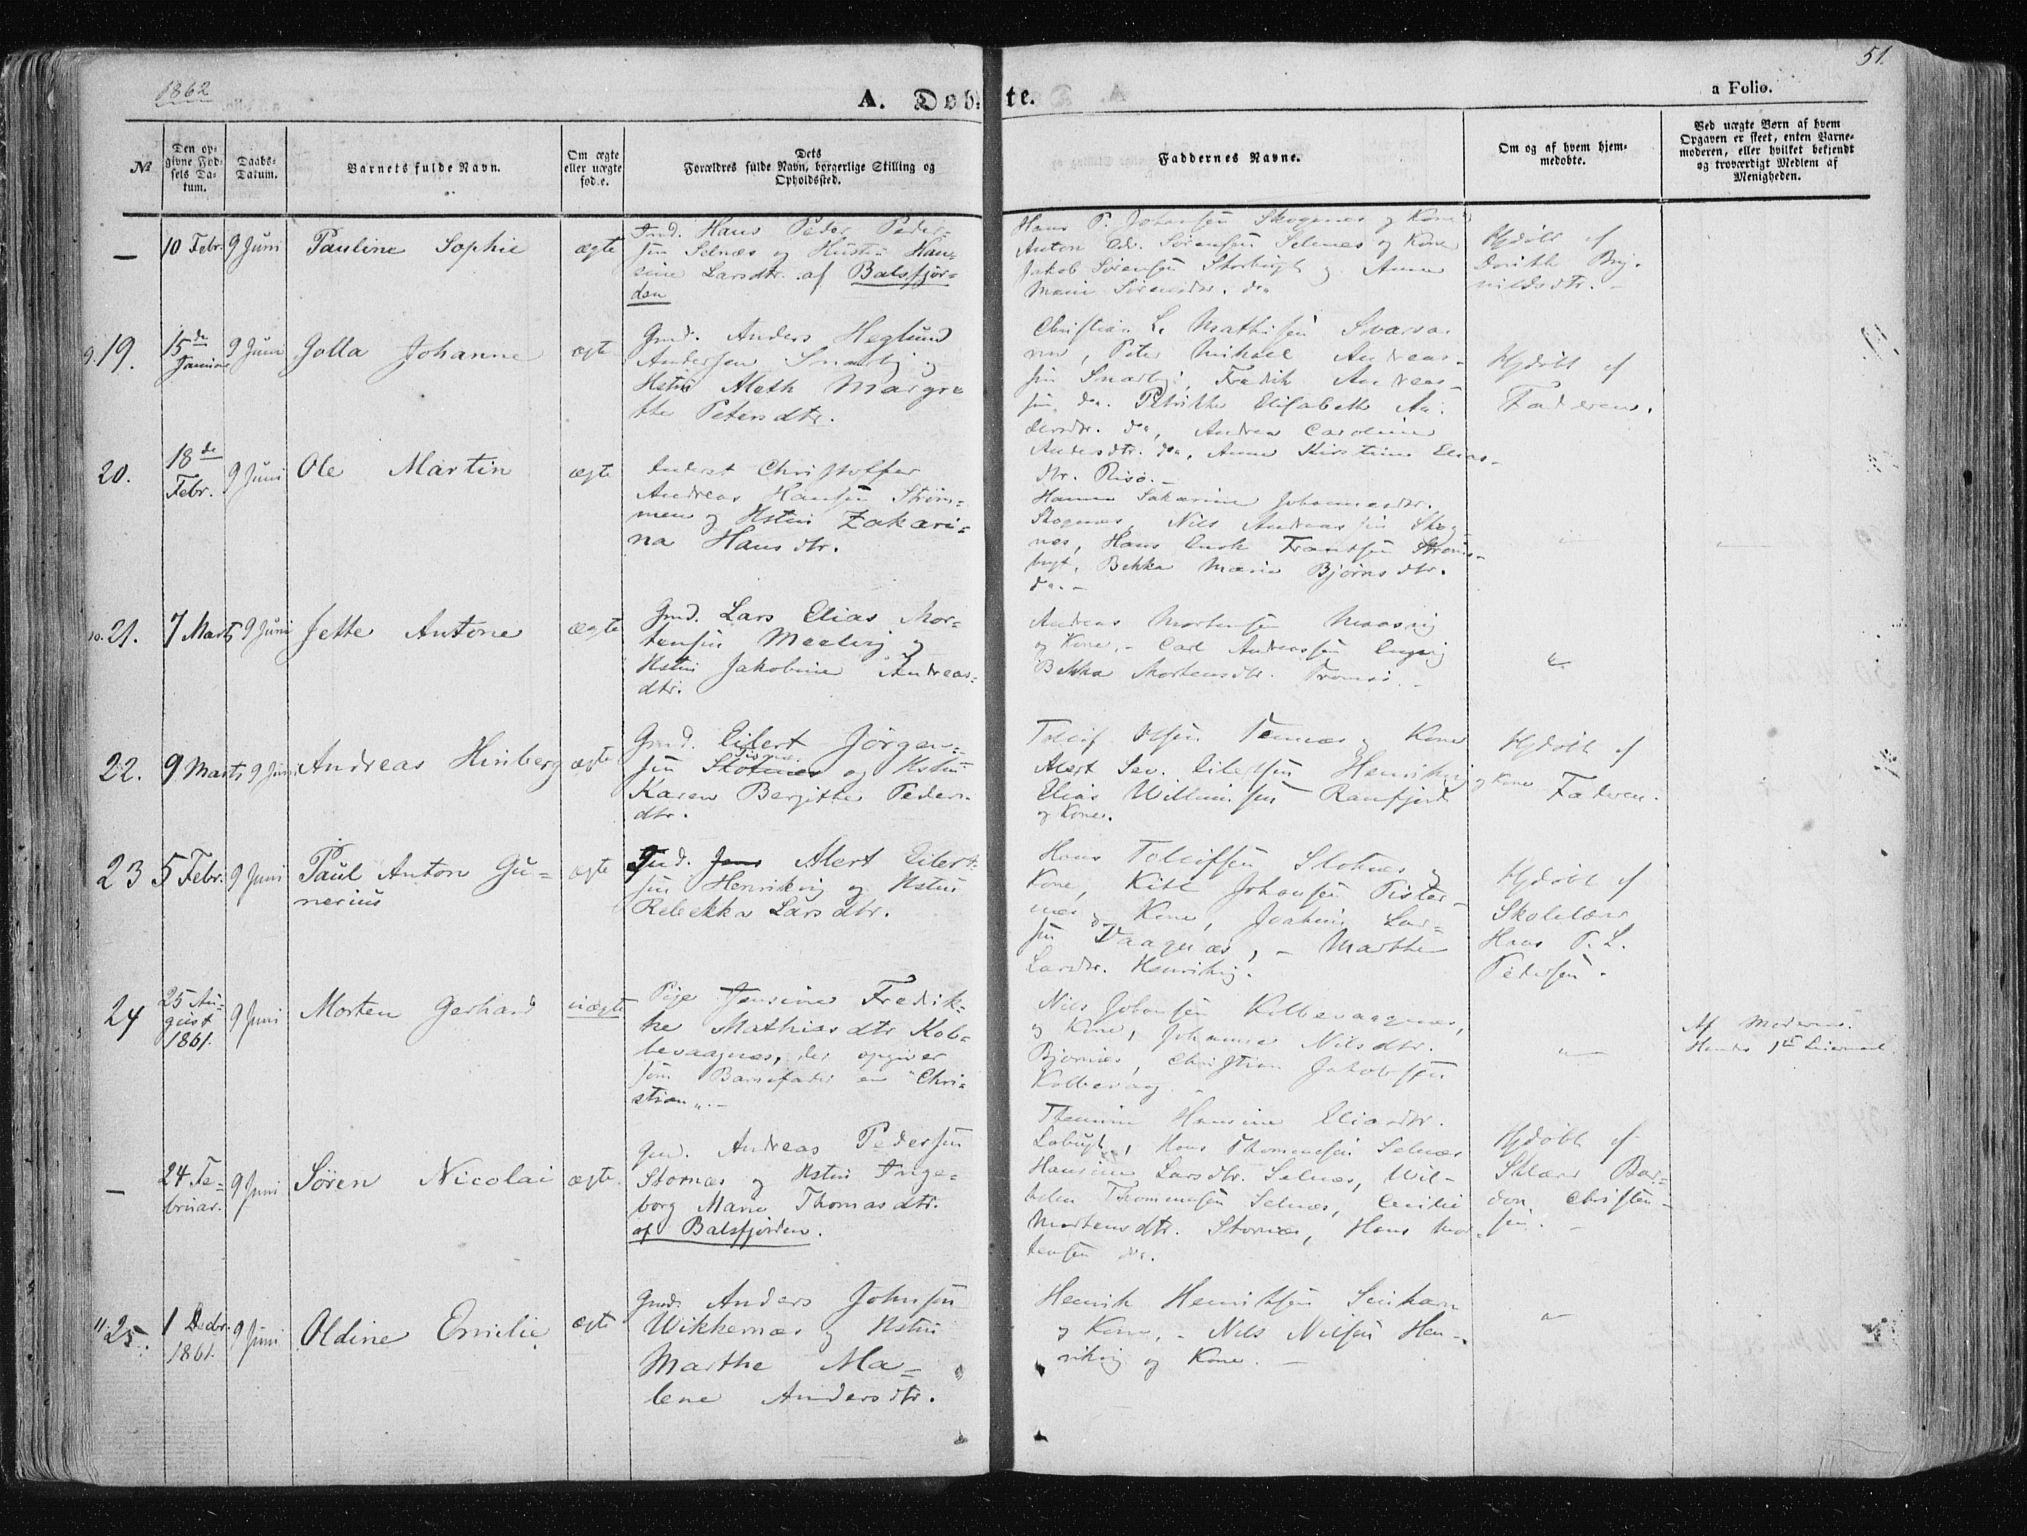 1862
51.
A. Døbte.
a Folio.
№
Den opgivne Fødsels Datum.
Daabs-Datum.
Barnets fulde Navn.
Om ægte eller uægte fød.e.
Dets Forældres fulde Navn, borgerlige Stilling og Opholdssted.
Faddernes Navne.
Om og af hvem hjemmedobte.
Ved uægte Børn af hvem Opgaven er skeet, enten Barnemoderen, eller hvilket bekjendt og troværdigt Medlem af Menigheden.
— 10 Febr. 9 Juni Pauline Sophie ægte
Ind. Hans Peder Peder-
sen Selnæs og Hustru Han-
sine Larsdtr. af Balsfjor-
den
Hans P. Johansen Skognæs og Kone
Anton Ed. Sørensen Selnæs og Kone
Jakob Sørensen Storbugt og Anne
Marie Sørensdtr. do
Hjdøbt af
Dorithe Bry-
nildsdtr. -
9. 19. 15de Januar 9 Juni Golla Johanne ægte
Gmd. Anders Heglund
Andersen Snarby og
Hstru Aleth Margre
the Petersdtr.
Christian L. Mathisen Svarva
re, Peter Mikael Andreas-
sen Snarby, Fredrik Andreas-
sen do. Petrikke Elisabeth An-
dersdtr. do, Andrea Caroline
Andersdtr. do, Anne Kirstine Elias-
dtr. Risø. -
Hjdøbt af
Faderen.
20. 18de Febr. 9 Juni Ole Martin ægte
Inderst Christoffer
Andreas Hansen Strøm-
men og Hstru Zakari-
na Hansdtr.
Hanna Sakarine Johannesdtr.
Skognæs, Nils Andreassen Skog
næs, Hans Enok Frantsen Strøms-
bugt, Bekka Marie Bjørnsdtr.
do. -
10. 21. 7 Marts 9 Juni Jette Antone ægte
Gmd. Lars Elias Mor-
tensen Meelvig og
Hstru Jakobine Andreas-
dtr.
Andreas Mortensen Maasvig
og Kone, - Carl Andreassen
Bekka Mortensdtr. Tromsø. -
22. 9 Marts 9 Juni Andreas Hinberg ægte
Gmd. Eilert Jørgen-
sen Slotnæs og Hstru
Karen Bergithe Peders-
dtr.
Tollef Olsen Tennæs og Kone
Alert Sev. Eilertsen Henrikvig og Kone
Elias Willumsen Ramfjord
og Kone.
Hjdøbt af
Faderen.
23 5 Febr. 9 Juni Paul Anton Gu-
nerius ægte
Ind. Jens Alert Eilert-
sen Henrikvig og Hstru
Rebekka Larsdtr.
Hans Tollefsen Slotnæs og
Kone, Kitil Johansen Tister-
næs og Kone, Joakim Lar-
sen Daagnæs, - Marthe
Larsdtr. Henrikvig.
Hjdøbt af
Skolelærer
Hans P. L.
Pedersen.
24 25 August 1861. 9 Juni Morten Gerhard uægte
Pige Jensine Fredrik-
ke Mathiasdtr Kob-
bevaagnæs, der opgiver
som Barnefader en "Chri-
stian". -
Nils Johansen Kolbevaagnæs,
og Kone, Johanna Nilsdtr.
Bjørnæs, Christian Jakobsen
Kolbevaag. -
Af Moderen.
Hendes 1ste Leiermaal
— 24 Februar. 9 Juni Søren Nicolai ægte.
Gmd. Andreas Pedersen
Stornæs og Hstru Inge-
borg Marie Thomasdtr.
af Balsfjorden.
Hansine Eliasdtr.
Labugt, Hans Thommesen Selnæs
Hansine Larsdtr. Selnæs, Wil-
helm Thommesen Selnæs, Emilie
Mortensdtr. Stornæs, Hans Mor-
tensen do.
Hjdøbt af
Sklærer Bar-
don Christen-
sen. -
11. 25. 1 Decbr. 1861. 9 Juni Oldine Emilie ægte
Gmd. Anders Johnsen
Wikkernæs og Hstru
Marthe Ma-
lene Andersdtr.
Henrik Henriksen
og Kone, - Nils Nilsen Hen-
rikvig og Kone. -